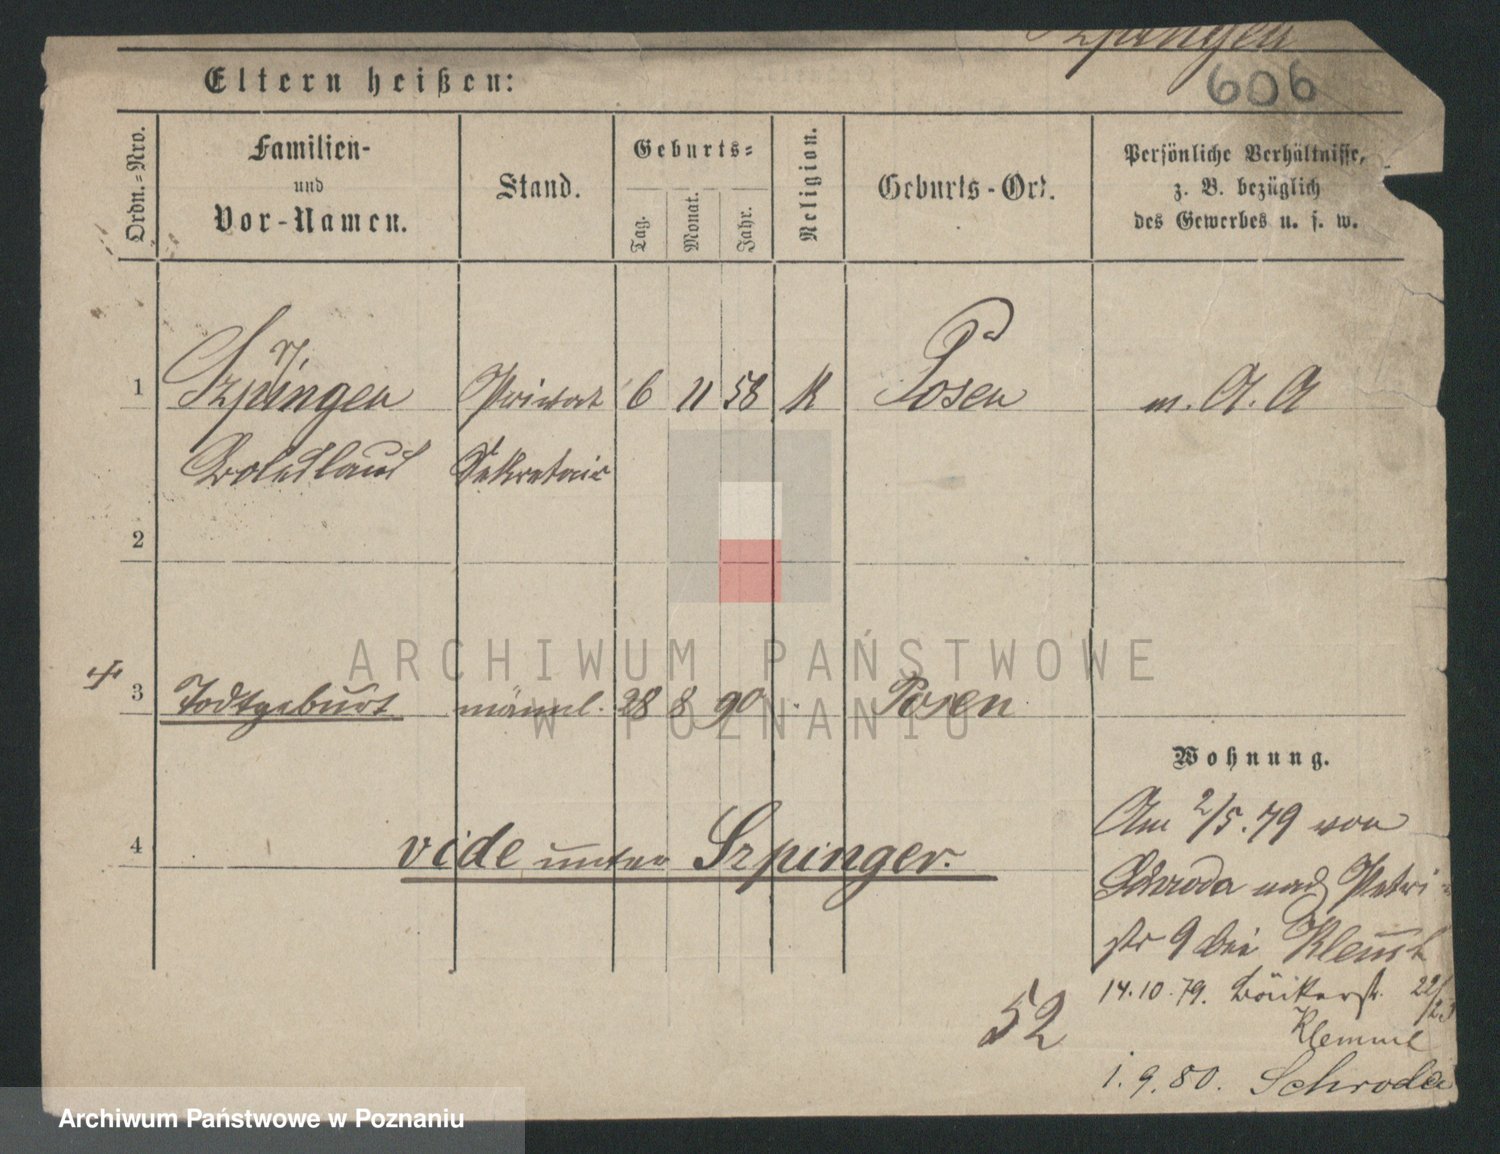 Szpingen
606
Eltern heißen:
Ordn.-Nro.
Familien-
und
Vor-Namen.
Stand.
Geburts-
Tag.
Monat.
Jahr.
Religion.
Geburts-Ort.
Persönliche Verhältnisse,
z. B. bezüglich
des Gewerbes u. s. w.
1 Szpingen Privat 6 11 58 K Posen m. A. A
Boleslaus Sekretair
2
3 Todtgeburt männl. 28 8 90 Posen
Wohnung.
Am 2/5.79 von
Schroda nach Petri-
4 vide unter Szpinger.
str 9 bei
14.10.79. Bäckerstr. 22/23
Klemme
52
1.9.80. Schroda
ARCHIWUM PAŃSTWOWE
W POZNANIU
Archiwum Państwowe w Poznaniu